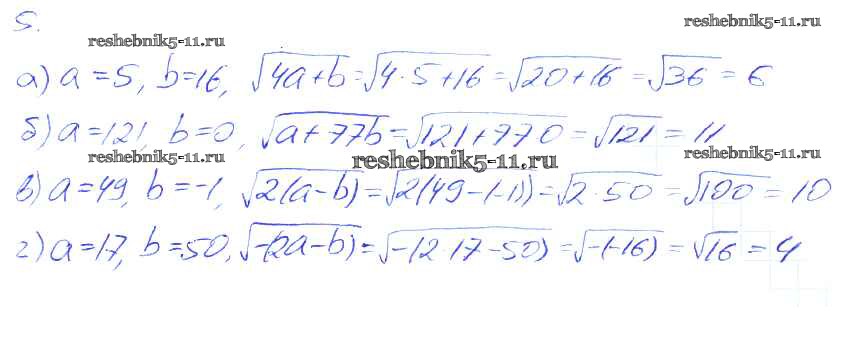 5.
reshebnik5-11.ru
reshebnik5-11.ru
а) a = 5, b = 16, √(4a+b) = √(4·5+16) = √(20+16) = √36 = 6
б) a = 121, b = 0, √(a+77b) = √(121+77·0) = √121 = 11
reshebnik5-11.ru
reshebnik5-11.ru
reshebnik5-11.ru
в) a = 49, b = -1, √(2(a-b)) = √(2(49-(-1))) = √(2·50) = √100 = 10
г) a = 17, b = 50, √(-(2a-b)) = √(-(2·17-50)) = √(-(-16)) = √16 = 4